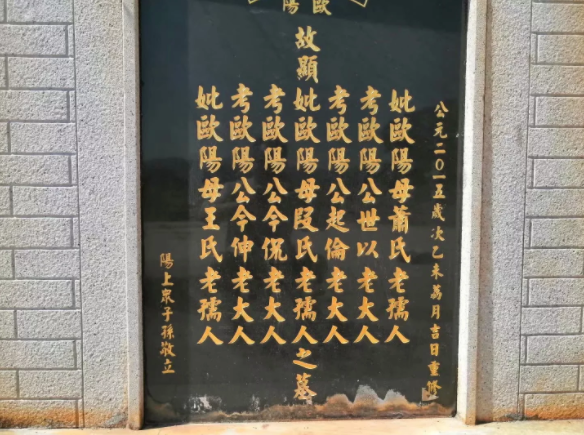 歐陽
公元二〇一五歲次乙未荔月吉日重修
妣歐陽母蕭氏老孺人
考歐陽公世以老大人
考歐陽公起倫老大人
故顯妣歐陽母段氏老孺人之墓
考歐陽公今侃老大人
考歐陽公今伸老大人
妣歐陽母王氏老孺人
陽上衆子孫敬立